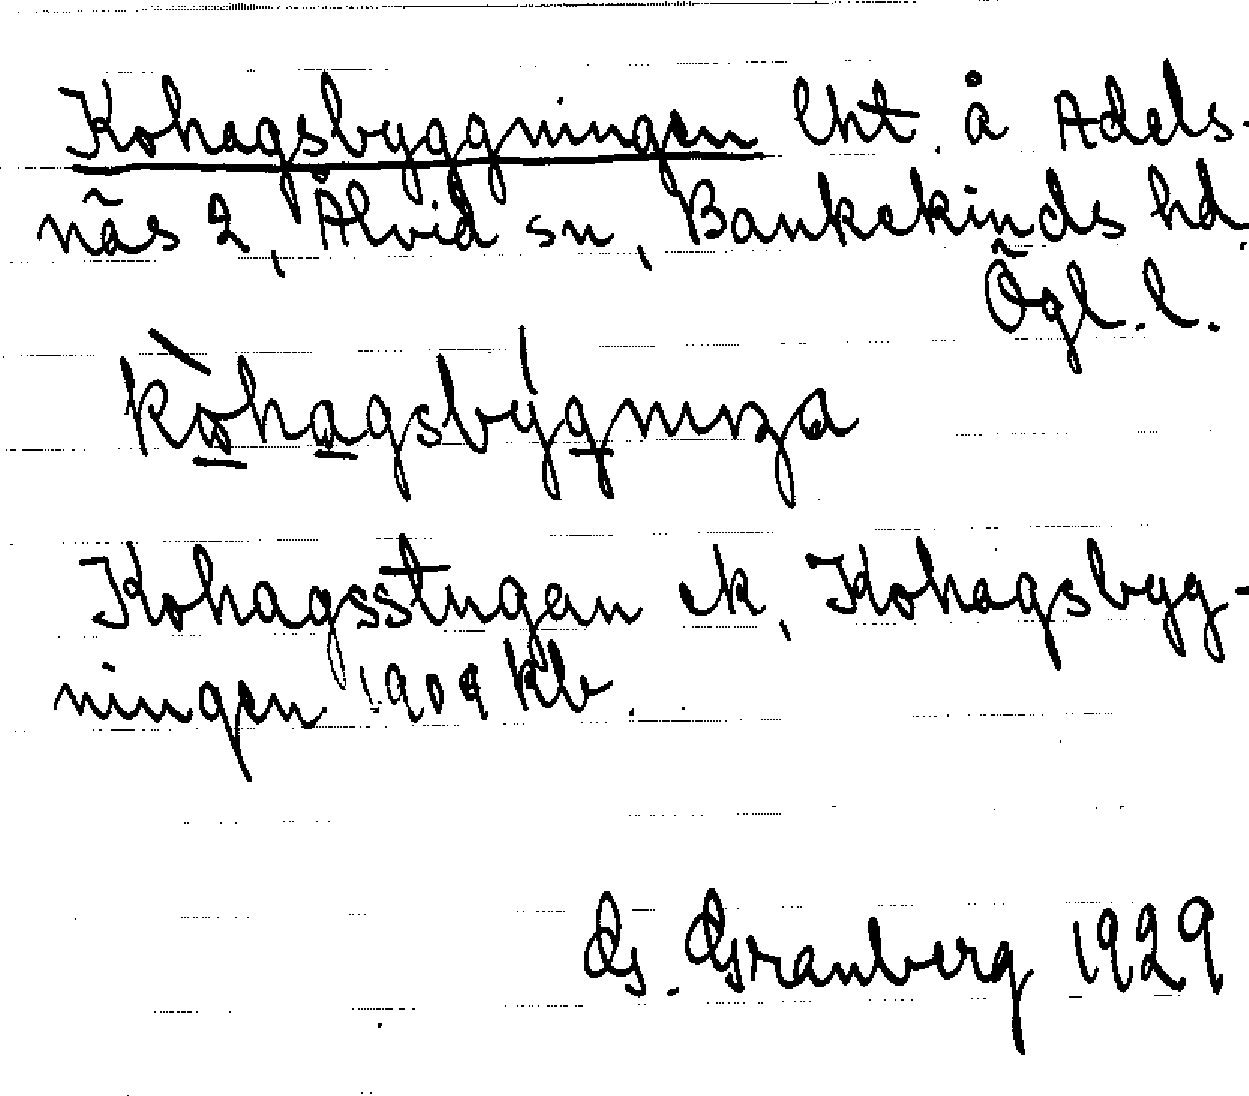 Kohagsbyggningen lht. å Adels-
näs 2, Åtvid sn, Bankekinds hd.
Ögl. l.
kòhagsbýgnıŋa
Kohagsstugan ek, Kohagsbygg-
ningen 1909 kb.
G. Granberg 1929